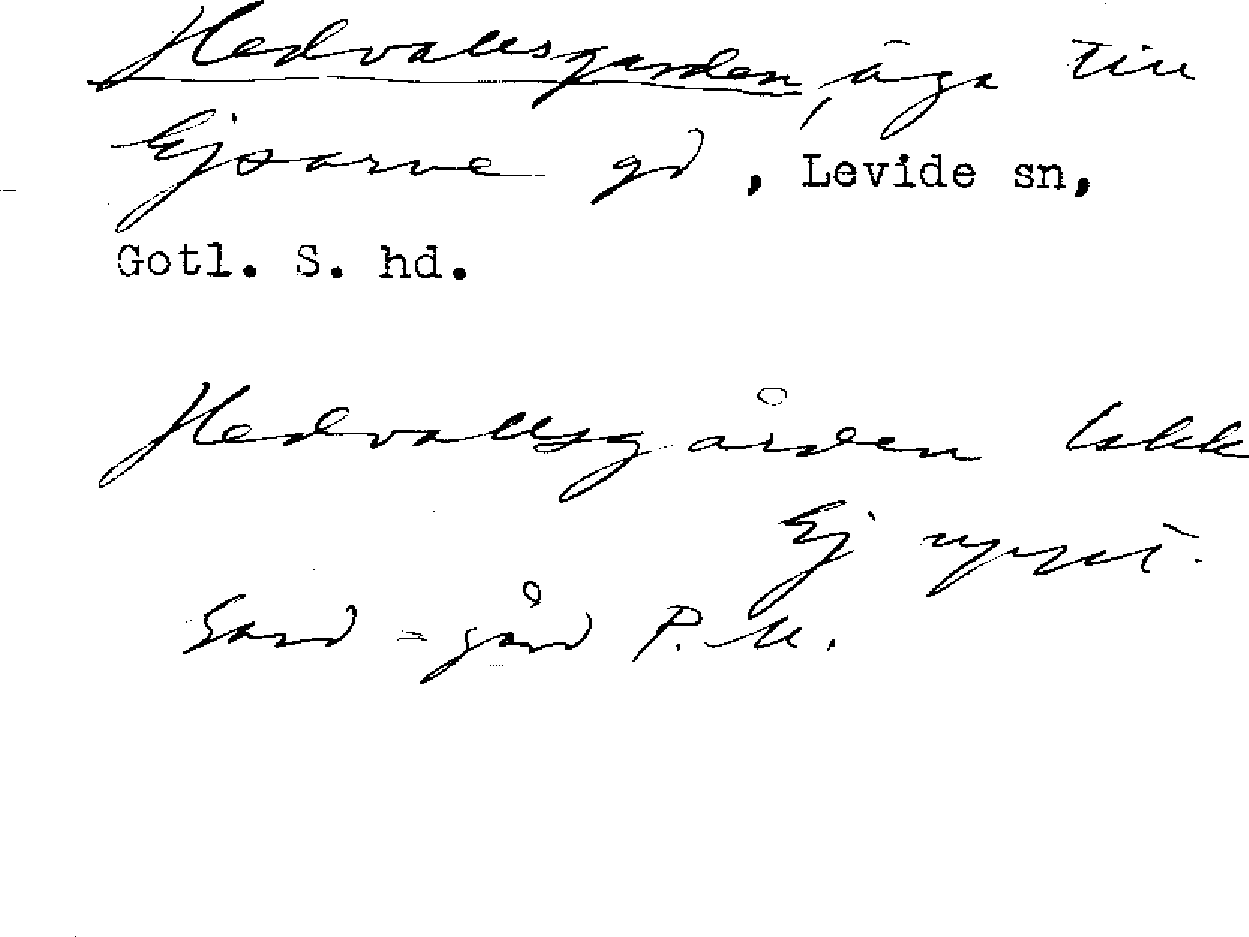 Hedvallsgarden, äga till
Ejsarve gd, Levide sn,
Gotl. S. hd.
Hedvallsgården lskk
Ej uppt.
Gard = gård P. M.